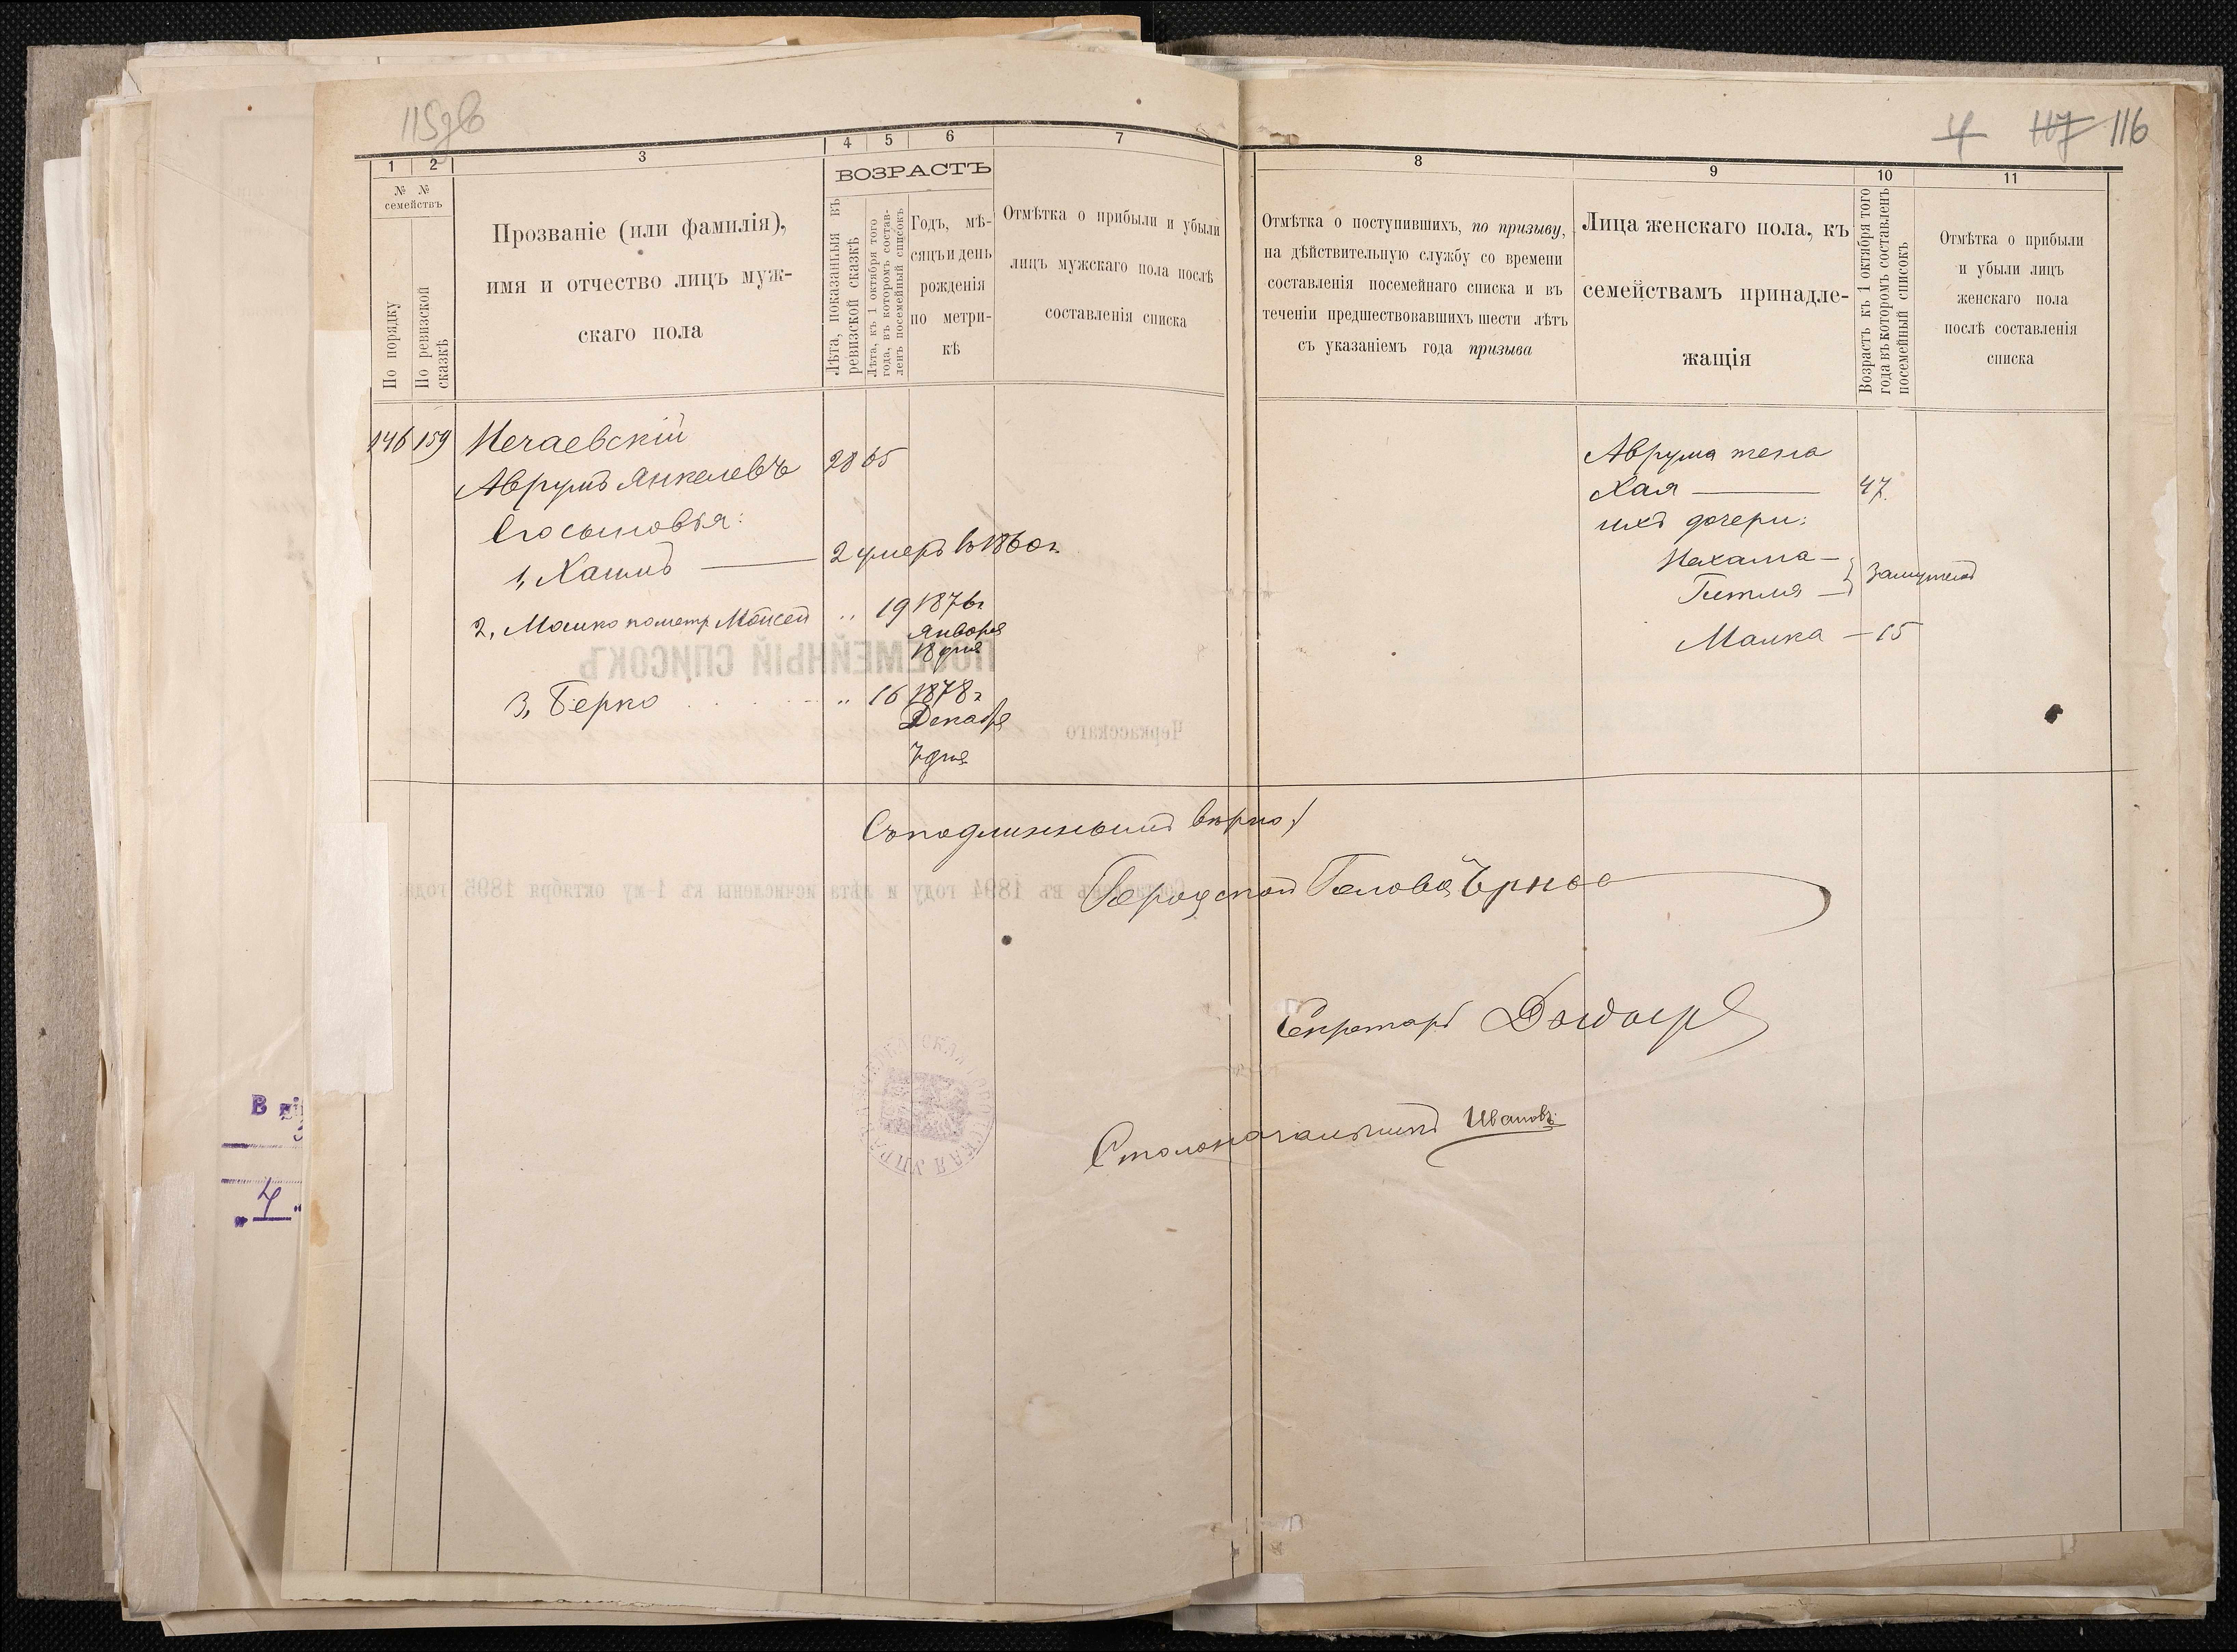 115об
4 117 116
1 2 3 4 5 6 7
№ № семействъ
По порядку
По ревизской сказкѣ
Прозваніе (или фамилія),
имя и отчество лицъ муж-
скаго пола
ВОЗРАСТЪ
Лѣта, показанныя въ
ревизской сказкѣ
Лѣта, къ 1 октября того
года, въ которомъ состав-
ленъ посемейный списокъ
Годъ, мѣ-
сяцъ и день
рожденія
по метри-
кѣ
Отмѣтка о прибыли и убыли
лицъ мужскаго пола послѣ
составленія списка
8 9 10 11
Отмѣтка о поступившихъ, по призыву,
на дѣйствительную службу со времени
составленія посемейнаго списка и въ
теченіи предшествовавшихъ шести лѣтъ
съ указаніемъ года призыва
Лица женскаго пола, къ
семействамъ принадле-
жащія
Возрастъ къ 1 октября того
года въ которомъ составленъ
посемейный списокъ
Отмѣтка о прибыли
и убыли лицъ
женскаго пола
послѣ составленія
списка
146 159 Нечаевскій
Аврумъ Янкелевъ 28 65
Его сыновья:
1, Хаимъ — 2 умеръ въ 1860 г.
2, Мошко по метр. Мойсей " 19 1876 г
Января
18 дня
3, Берко " 16 1878 г
Декабря
7 дня
Аврума жена
Хая — 47.
ихъ дочери:
Нехама —
Гитля — } замужемъ
Малка — 15
ПОСЕМЕЙНЫЙ СПИСОКЪ
Черкасскаго
въ 1894 году и лѣта исчислены къ 1-му октября 1895 года
Съ подлиннымъ вѣрно:
Городской Голова
Секретарь
Столоначальникъ Ивановъ
В
"4"